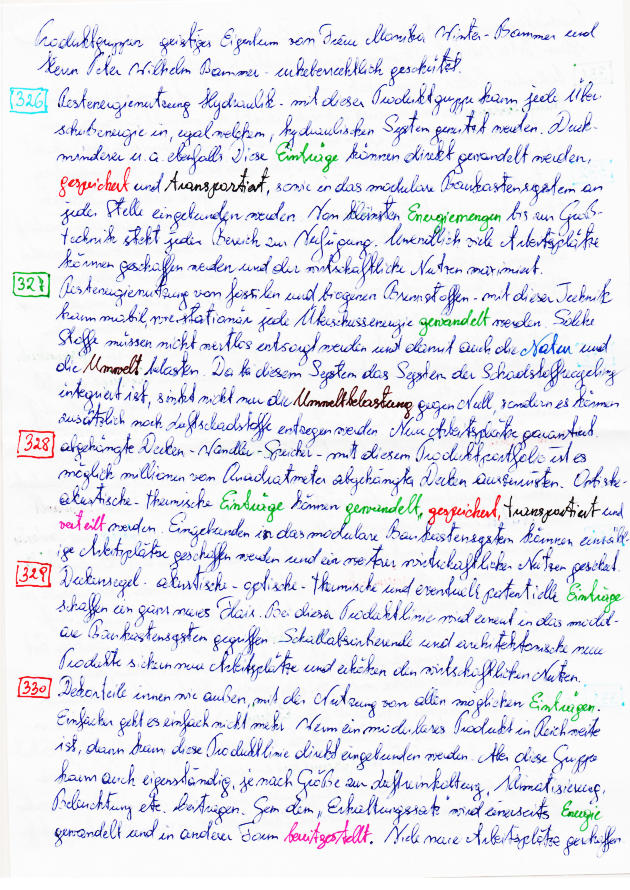 Produktgruppen geistiges Eigentum von Frau Monika Winter-Bammer und
Herrn Peter Wilhelm Bammer - urheberrechtlich geschützt.
326 Restenergienutzung Hydraulik - mit dieser Produktgruppe kann jede Über-
schußenergie in, egal welchem, hydraulischen System genutzt werden. Druck-
minderer u. a. ebenfalls Diese Einträge können direkt gewandelt werden,
gespeichert und transportiert, sowie in das modulare Baukastensystem an
jeder Stelle eingebunden werden Von kleinsten Energiemengen bis zur Groß-
technik steht jeder Bereich zur Verfügung. Unendlich viele Arbeitsplätze
können geschaffen werden und der wirtschaftliche Nutzen maximiert.
327 Restenergienutzung von fossilen und biogenen Brennstoffen - mit dieser Technik
kann mobil, wie stationär jede Überschussenergie gewandelt werden. Solche
Stoffe müssen nicht wertlos entsorgt werden und damit auch die Natur und
die Umwelt belasten. Da in diesem System das System der Schadstoffreinigung
integriert ist, sinkt nicht nur die Umweltbelastung gegen Null, sondern es können
zusätzlich noch Luftschadstoffe entzogen werden Neue Arbeitsplätze garantiert.
328 abgehängte Decken - Wandler - Speicher - mit diesem Produktportfolio ist es
möglich millionen von Quadratmeter abgehängte Decken auszurüsten. Optische-
akustische - thermische Einträge können gewandelt, gespeichert, transportiert und
verteilt werden. Eingebunden in das modulare Baukastensystem können unzähl-
ige Arbeitsplätze geschaffen werden und ein weiterer wirtschaftlicher Nutzen gesichert.
329 Deckensegel - akustische - optische - thermische und eventuell potentielle Einträge
schaffen ein ganz neues Flair. Bei dieser Produktlinie wird erneut in das modul-
are Baukastensystem gegriffen Schallabsorbierende und architektonische neue
Produkte sichern neue Arbeitsplätze und erhöhen den wirtschaftlichen Nutzen.
330 Dekorteile innen wie außen, mit der Nutzung von allen möglichen Einträgen.
Einfacher geht es einfach nicht mehr Wenn ein modulares Produkt in Reichweite
ist, dann kann diese Produktlinie direkt eingebunden werden. Aber diese Gruppe
kann auch eigenständig, je nach Größe zur Luftreinhaltung, Klimatisierung,
Beleuchtung etc. beitragen. Gem dem "Erhaltungssatz" wird einerseits Energie
gewandelt und in anderer Form bereitgestellt. Viele neue Arbeitsplätze geschaffen